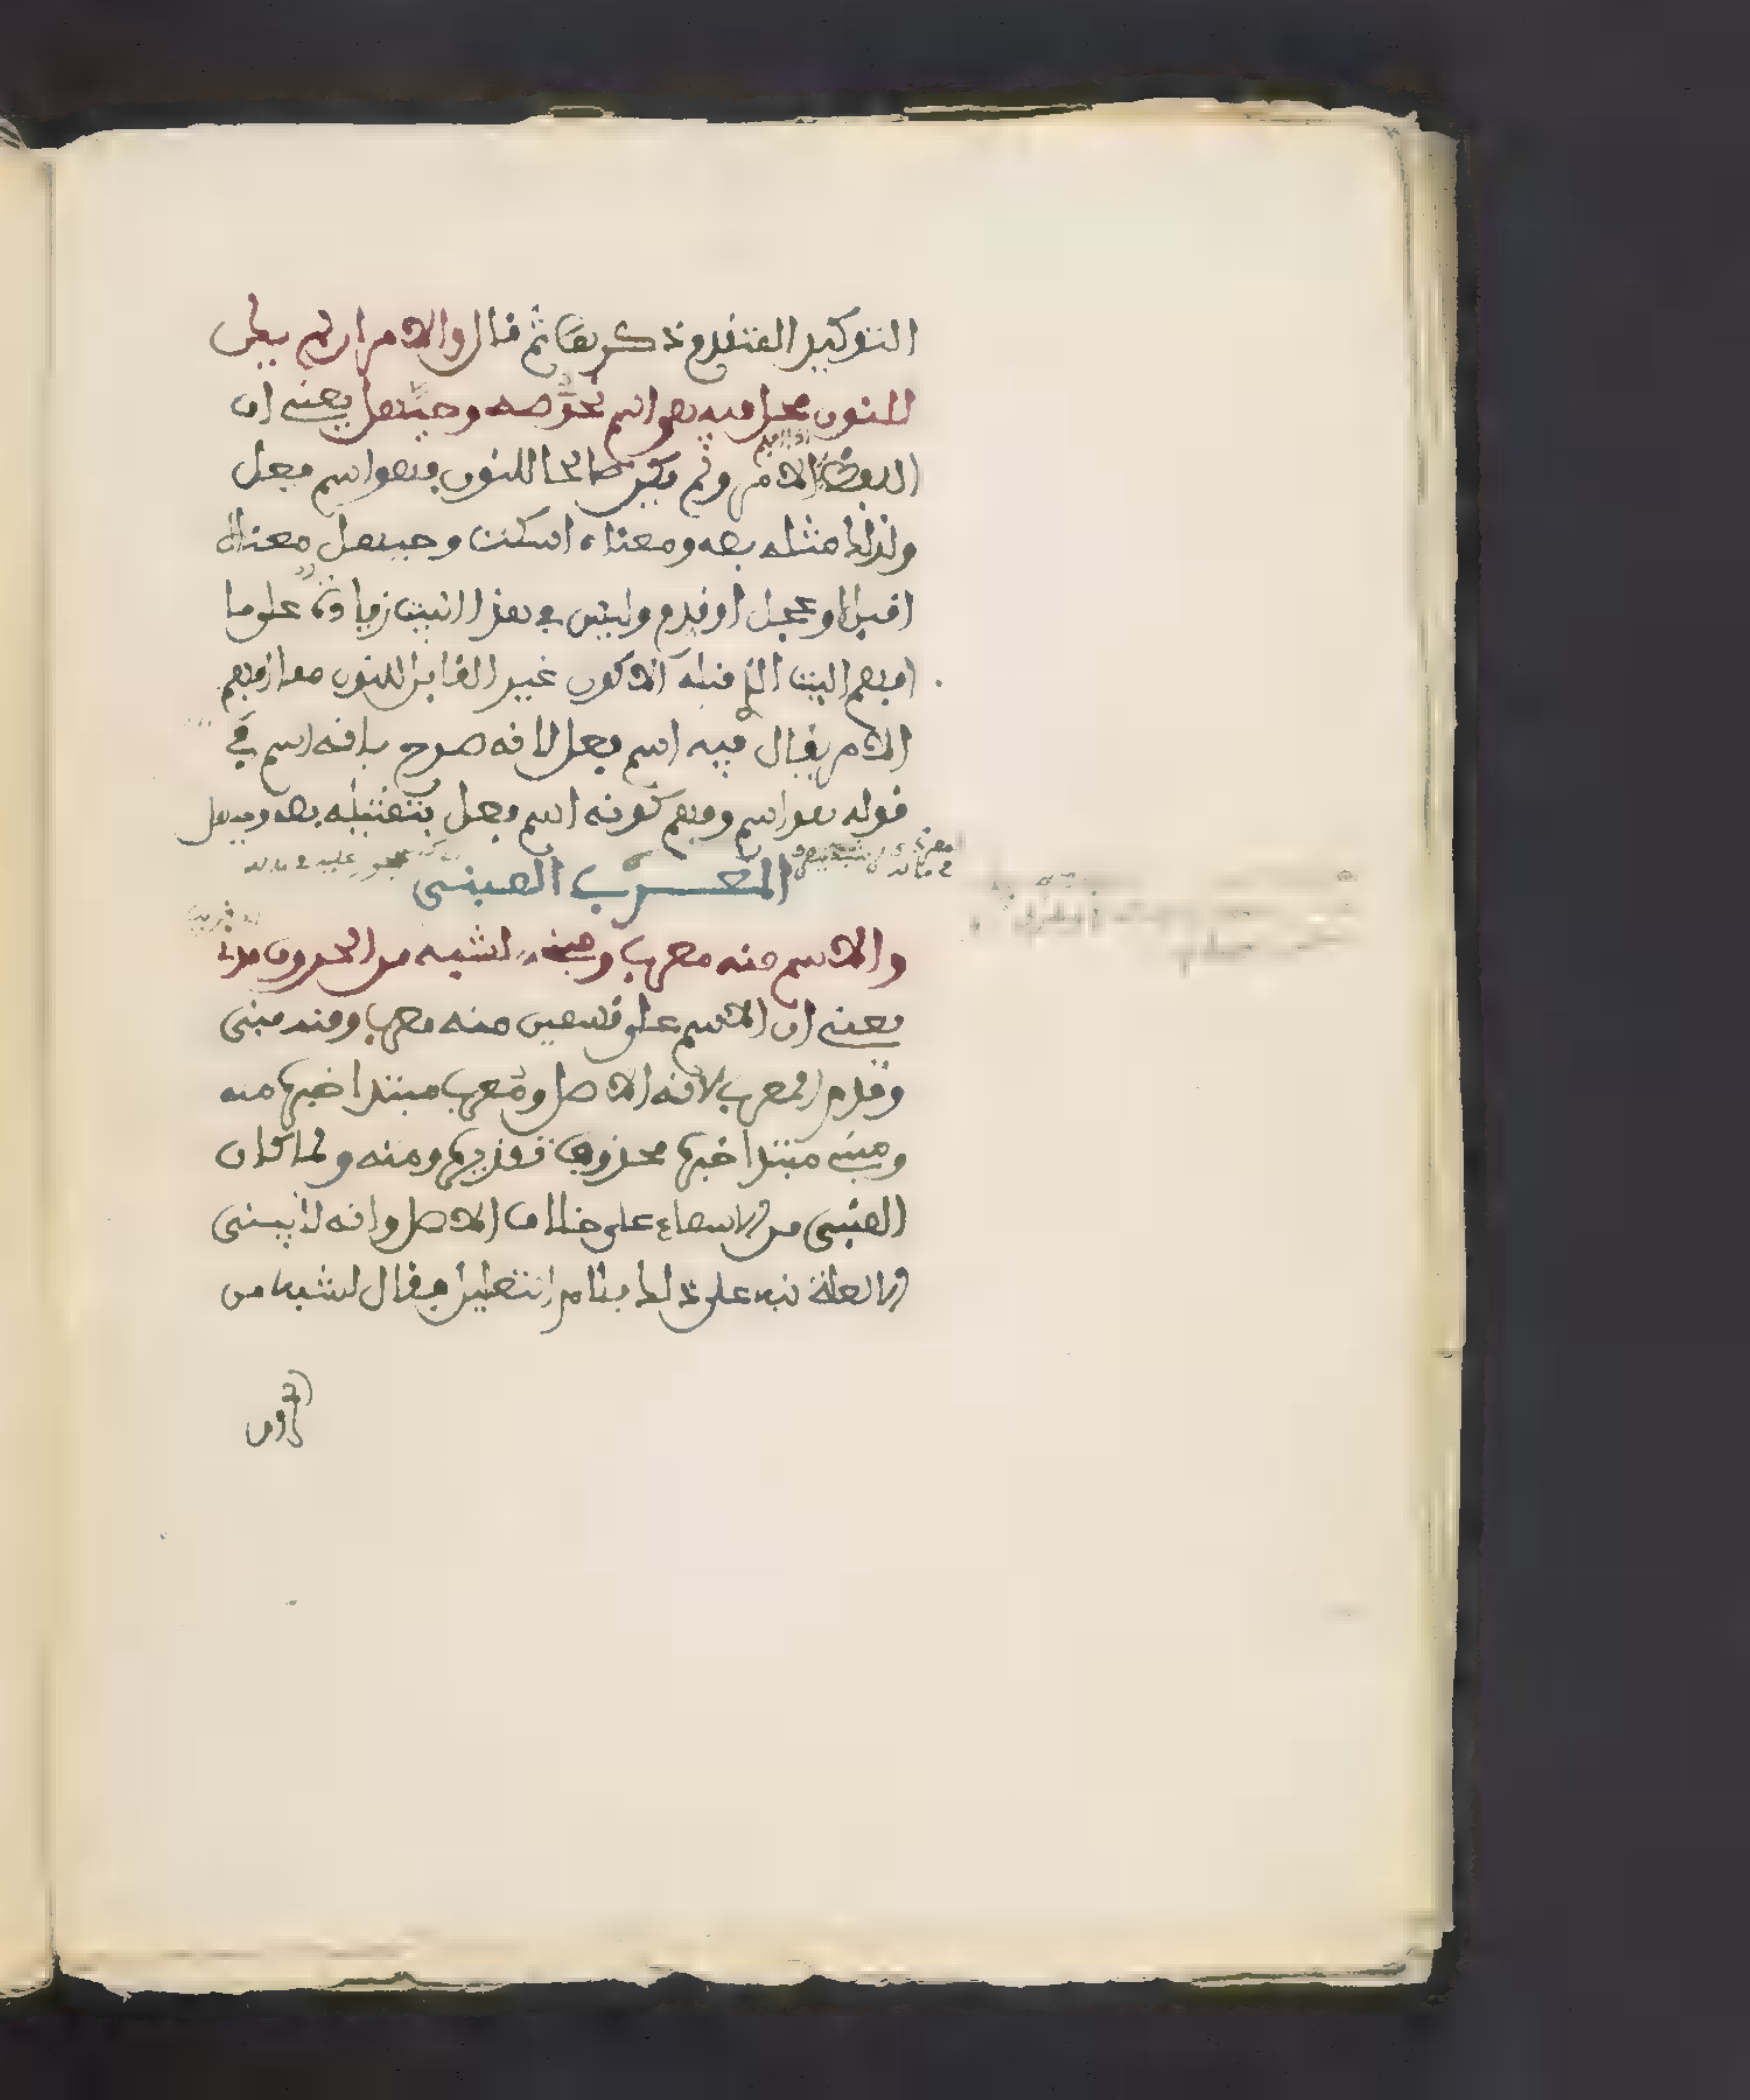 التوكيد المتقدم ذكرها ثم قال والامر ان لم يك
للنون محل فيه هو اسم نحو صه وحيهل يعني ان
اللفظ اذا افهم الامر ولم يكن صالحا للنون فهو اسم فعل
ولذلك مثله بصه ومعناه اسكت وحيهل معناه
اقبل او عجل او قدم وليس في هذا البيت زيادة على ما
افهم البيت الذي قبله الا كون غير القابل للنون مما افهم
الامر يقال فيه اسم فعل لانه صرح بانه اسم في
قوله هو اسم وفهم كونه اسم فعل بتمثيله بصه وحيهل
المعرب والمبني
والاسم منه معرب ومبني لشبه من الحروف مدني
يعني ان الاسم على قسمين منه معرب ومنه مبني
وقدم المعرب لانه الاصل ومعرب مبتدا خبره منه
ومبني مبتدا خبره محذوف تقديره ومنه ولما كان
المبني من الاسماء على خلاف الاصل وانه لا يبنى
الا لعلة نبه على ذلك بلام التعليل فقال لشبه من